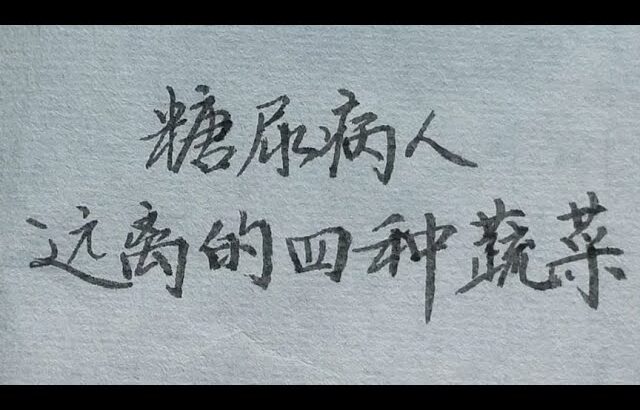 糖尿病人
远离的四种蔬菜